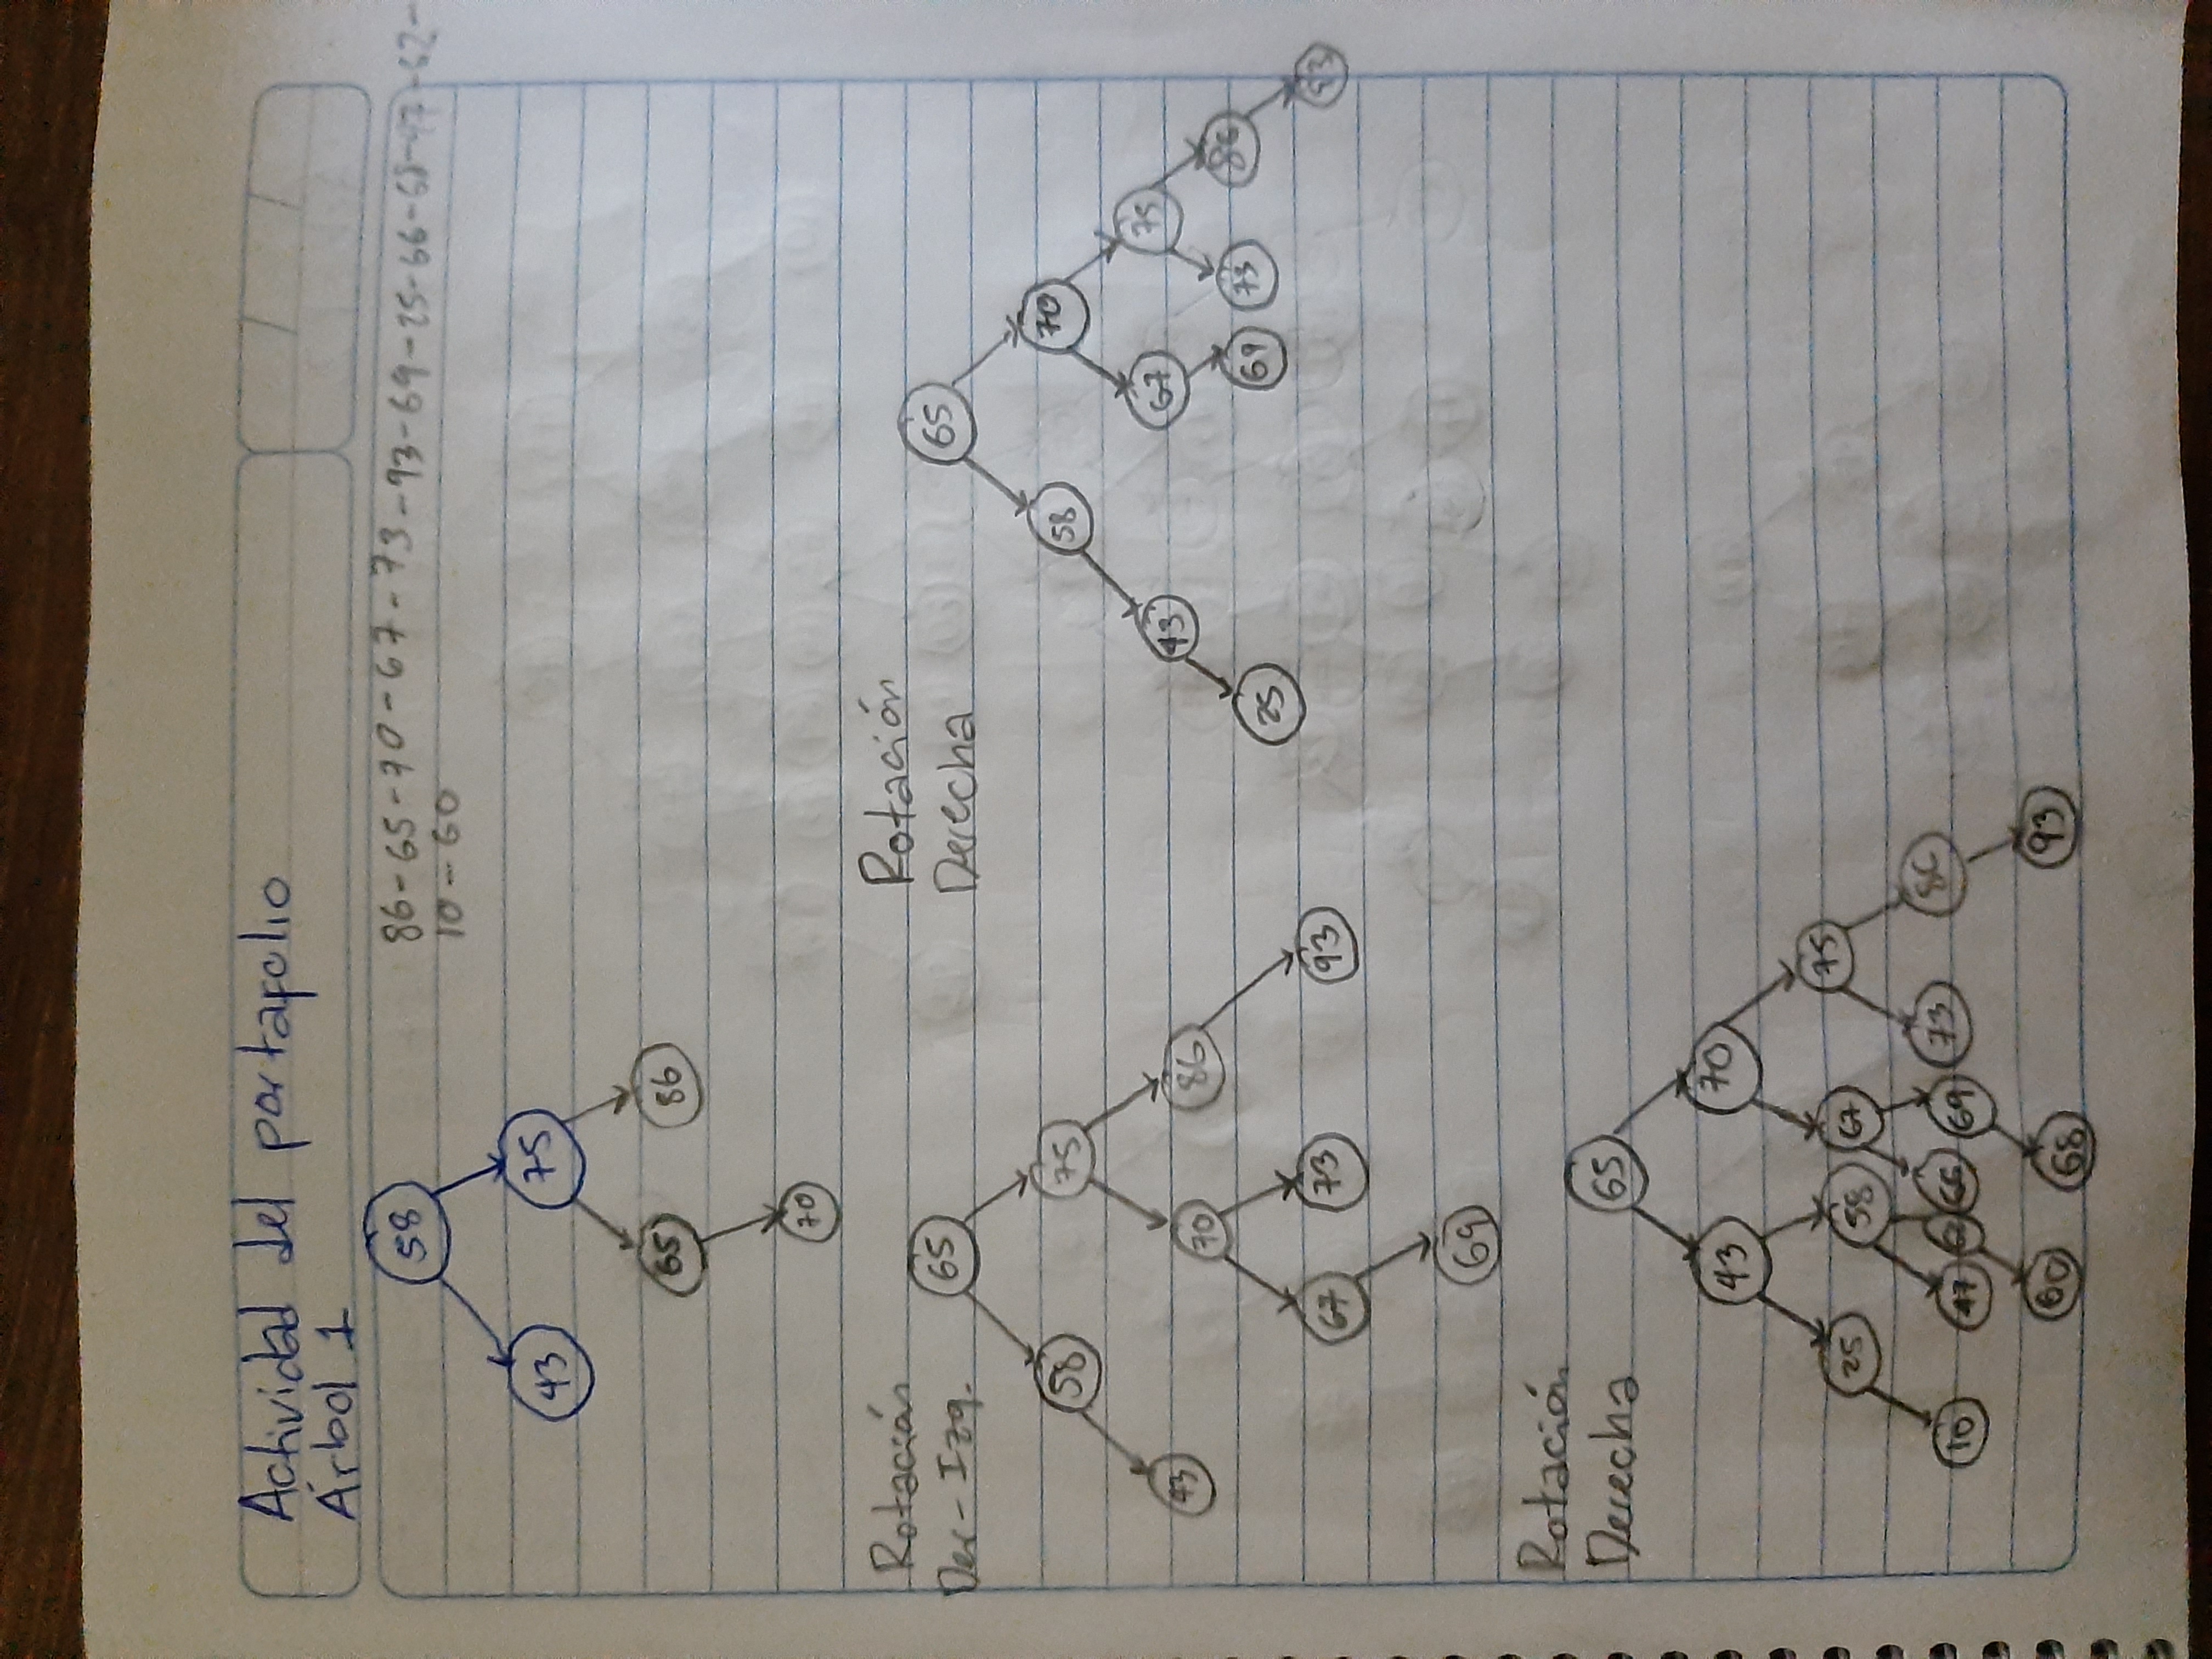 Actividad del portafolio
Árbol 1
86-65-70-67-73-93-69-25-66-68-47-62-
10-60
58
43 75
65 86
70
Rotación
Der-Izq.
65
58 75
43 70 86
67 73 93
69
Rotación
Derecha
65
58 70
43 67 75
25 69 73 86
93
Rotación
Derecha
65
43 70
25 58 67 75
10 47 62 66 69 73 86
60 68 93